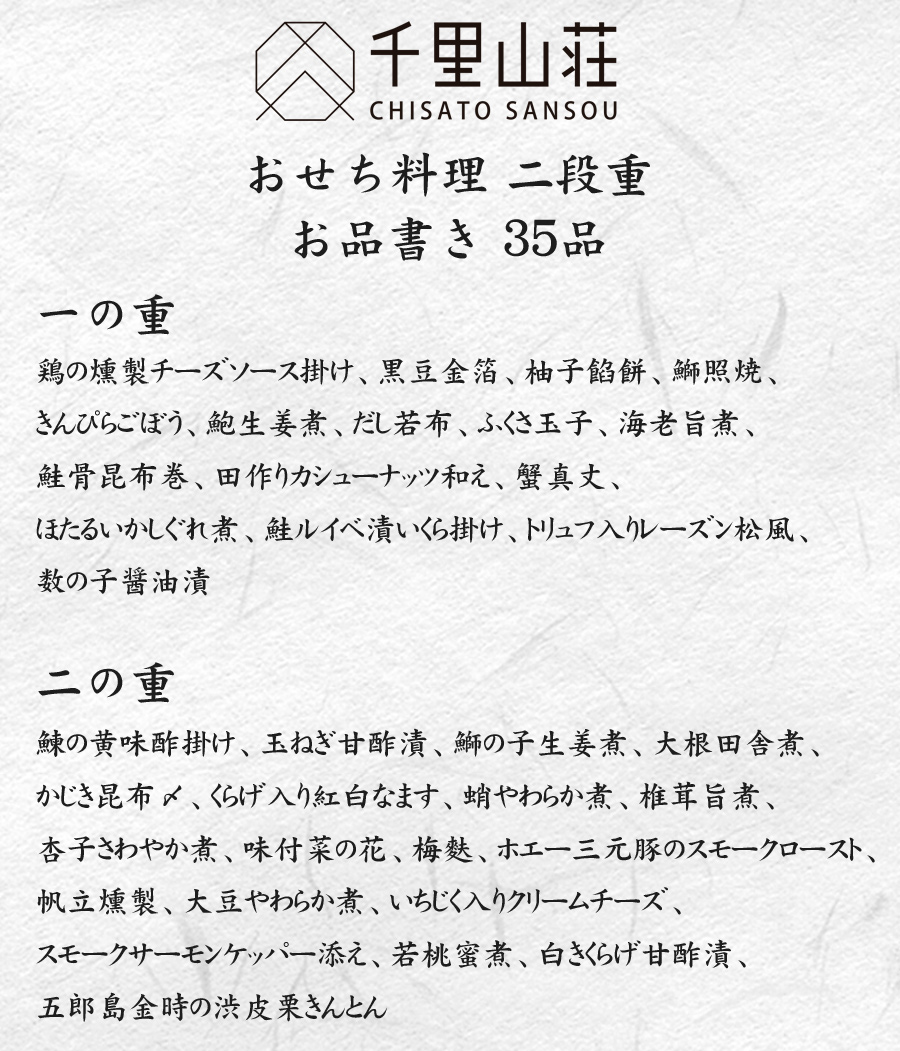 千里山荘
CHISATO SANSOU
おせち料理 二段重
お品書き 35品
一の重
鶏の燻製チーズソース掛け、黒豆金箔、柚子餡餅、鰤照焼、
きんぴらごぼう、鮑生姜煮、だし若布、ふくさ玉子、海老旨煮、
鮭骨昆布巻、田作りカシューナッツ和え、蟹真丈、
ほたるいかしぐれ煮、鮭ルイベ漬いくら掛け、トリュフ入りレーズン松風、
数の子醤油漬
二の重
鰊の黄味酢掛け、玉ねぎ甘酢漬、鰤の子生姜煮、大根田舎煮、
かじき昆布〆、くらげ入り紅白なます、蛸やわらか煮、椎茸旨煮、
杏子さわやか煮、味付菜の花、梅麩、ホエー三元豚のスモークロースト、
帆立燻製、大豆やわらか煮、いちじく入りクリームチーズ、
スモークサーモンケッパー添え、若桃蜜煮、白きくらげ甘酢漬、
五郎島金時の渋皮栗きんとん